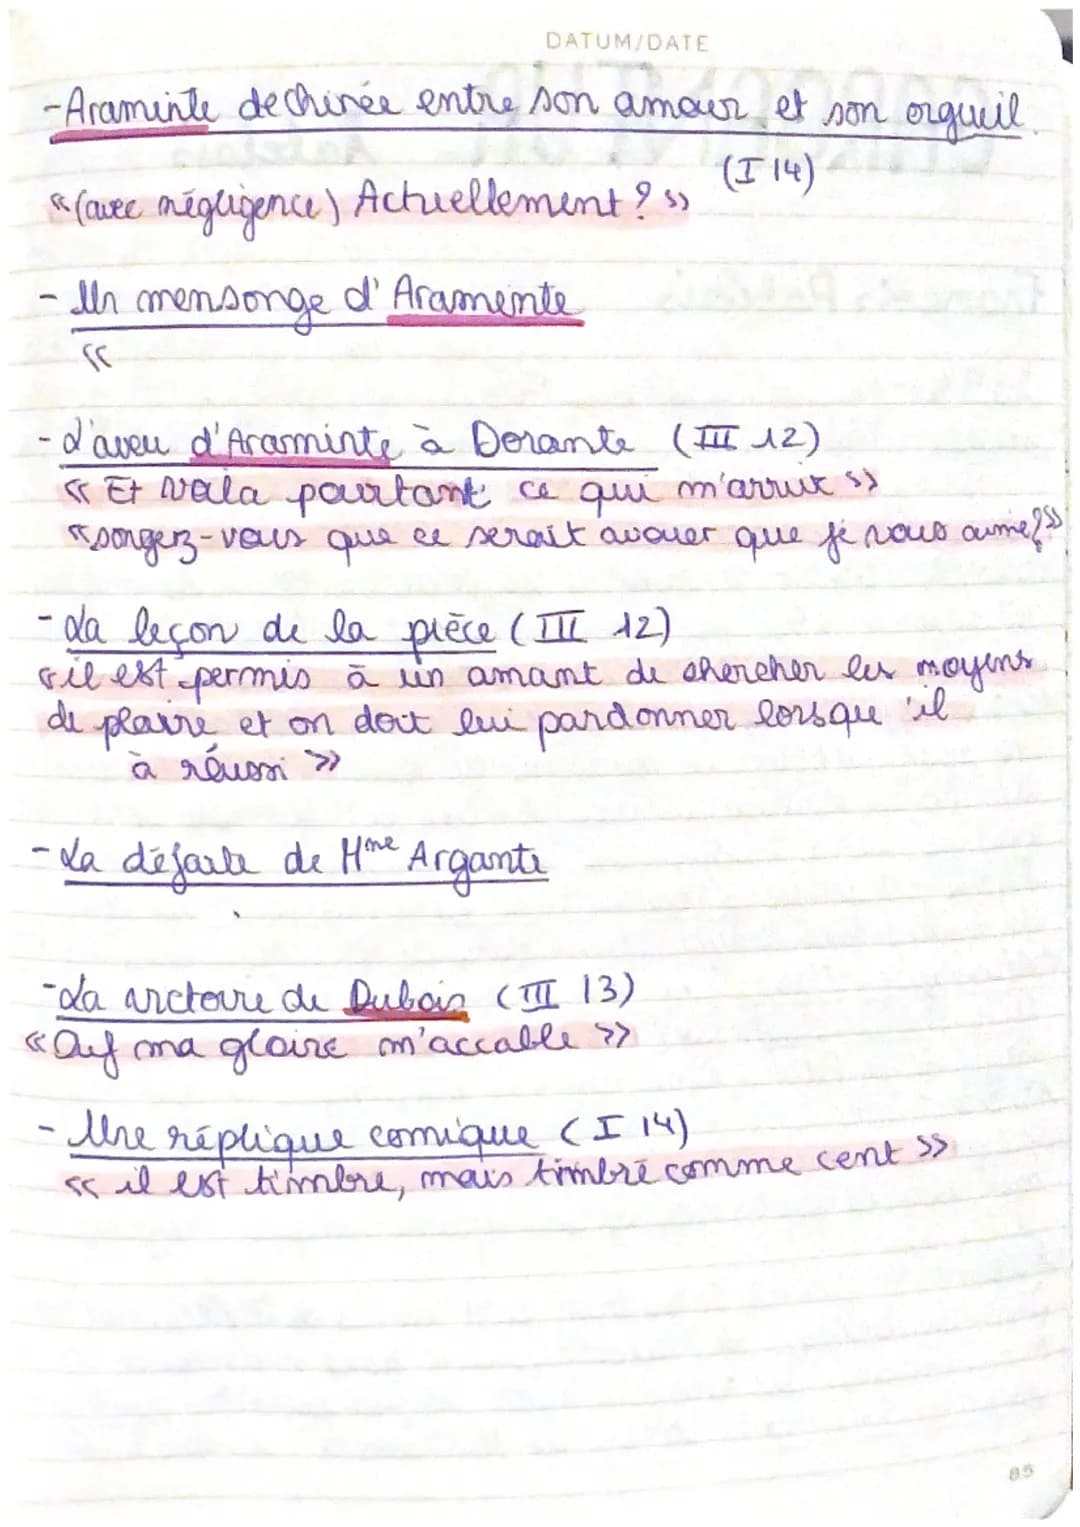 DATUM/DATE
- Araminte dechirée entre son amour et son orgueil
(I 14)
« (avec négligence) Actuellement ? »
- Un mensonge d'Araminte
«
- L'aveu d'Araminte à Dorante (III 12)
« Et voila pourtant ce qui m'arrive »
« songez-vous que ce serait avouer que je vous aime? »
- La leçon de la pièce (III 12)
« il est permis à un amant de chercher les moyens
de plaire et on doit lui pardonner lorsqu'il
à réussi »
- La défaite de Mme Argante
- La victoire de Dubois (III 13)
« Ouf ma gloire m'accable »
- Une réplique comique (I 14)
« il est timbre, mais timbré comme cent »
85